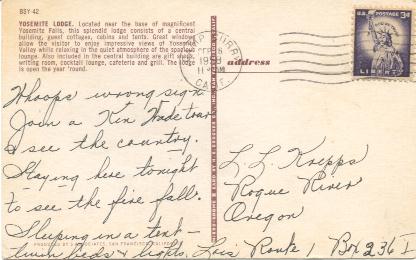 BSY-42
YOSEMITE LODGE. Located near the base of magnificent
Yosemite Falls, this splendid lodge consists of a central
building, guest cottages, cabins and tents. Great windows
allow the visitor to enjoy impressive views of Yosemite
Valley while relaxing in the quiet atmosphere of the spacious
lounge. Also in the central building are gift shop,
writing room, cocktail lounge, cafeteria and grill. The lodge
is open the year 'round.
CURRY
1958
CAL
U.S. POSTAGE 3¢
LIBERTY
address
Whoops wrong sign.
Join a Kin Trade tour
& see the country.
Staying here tonight
to see the fire fall.
Sleeping in a tent—
twin beds & lights. Lois
PRODUCED BY ASSOCIATES, SAN FRANCISCO, CALIFORNIA
L. L. Kripps
Rogue River
Oregon
Route 1 Box 236 I